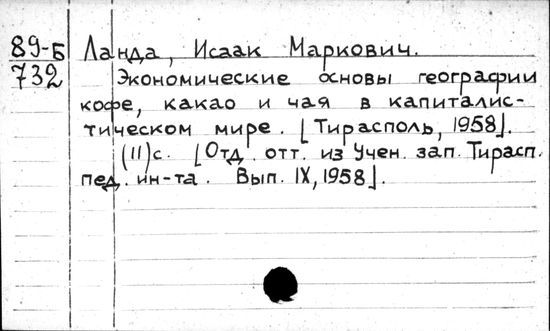 89-Б Ланда, Исаак Маркович.
732 Экономические основы географии
кофе, какао и чая в капиталис-
тическом мире. [Тирасполь, 1958].
(11)с. [Отд. отт. из Учен. зап. Тирасп.
пед. ин-та. Вып. IX, 1958].